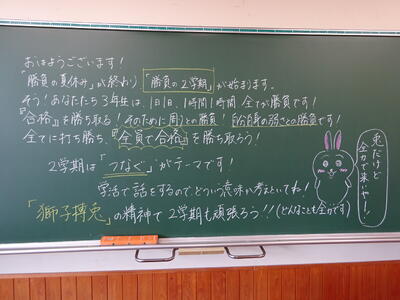 おはようございます！
「勝負の夏休み」が終わり「勝負の2学期」が始まります。
そう！あなたたち3年生は、1日1日、1時間1時間全てが勝負です！
『合格』を勝ち取る！そのために周りとの勝負！自分自身の弱さとの勝負です！
全てに打ち勝ち、『全員で合格』を勝ち取ろう！
2学期は「つなぐ」がテーマです！
学活で話をするので、どういう意味か考えといてね！
「獅子搏兎」の精神で2学期も頑張ろう！！(どんなことも全力です)
兎だけど
全力で来いやー！